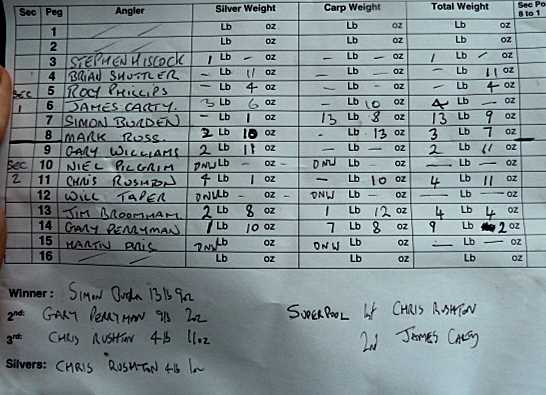 Sec Peg Angler Silver Weight Carp Weight Total Weight Sec Po
Lb oz Lb oz Lb oz 8 to 1
1 Lb oz Lb oz Lb oz
2 Lb oz Lb oz Lb oz
3 STEPHEN HISCOCK 1 Lb - oz - Lb - oz 1 Lb - oz
4 BRIAN SHUTTLER - Lb 11 oz - Lb - oz - Lb 11 oz
SEC 5 ROY PHILLIPS - Lb 4 oz - Lb - oz - Lb 4 oz
1 6 JAMES CARTY. 3 Lb 6 oz - Lb 10 oz 4 Lb - oz
7 SIMON BURDEN - Lb 1 oz 13 Lb 8 oz 13 Lb 9 oz
8 MARK ROSS. 2 Lb 10 oz - Lb 13 oz 3 Lb 7 oz
9 GARY WILLIAMS 2 Lb 11 oz - Lb - oz 2 Lb 11 oz
SEC 10 NIEL PILGRIM DNW Lb - oz - DNW Lb - oz - Lb - oz
2 11 CHRIS RUSHTON 4 Lb 1 oz - Lb 10 oz 4 Lb 11 oz
12 WILL TAPER DNW Lb - oz - DNW Lb - oz - Lb - oz
13 TIM BROOMHAM 2 Lb 8 oz 1 Lb 12 oz 4 Lb 4 oz
14 GARY PERRYMAN 1 Lb 10 oz 7 Lb 8 oz 9 Lb 2 oz
15 MARTIN DNW Lb oz DNW Lb oz - Lb - oz
16 Lb oz Lb oz Lb oz
Winner: SIMON 13lb 9oz
2nd: GARY PERRYMAN 9lb 2oz
3rd: CHRIS RUSHTON 4lb 11oz
Silvers: CHRIS RUSHTON 4lb 1oz
SUPERPOOL 1st CHRIS RUSHTON
2nd JAMES CARTY